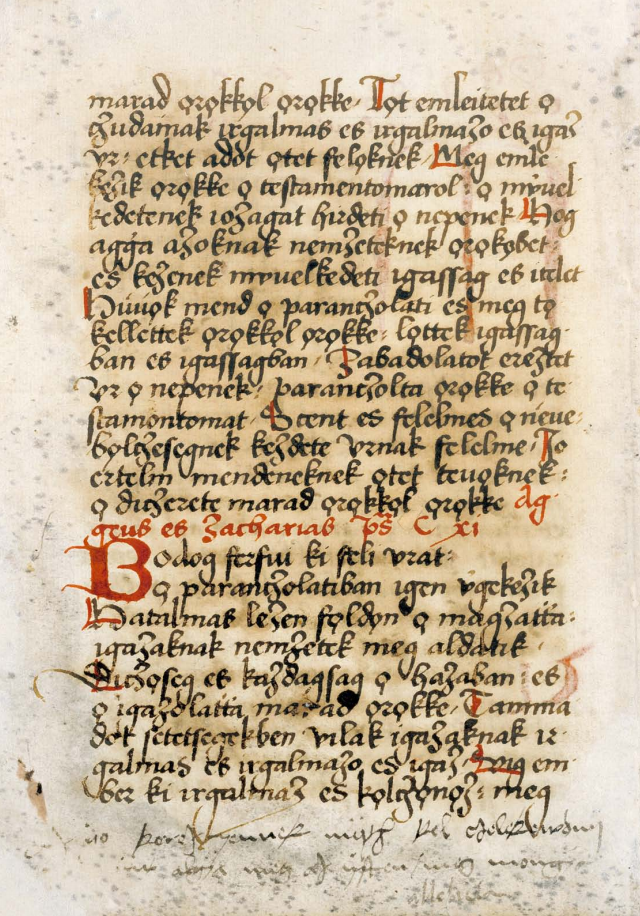 marad ǫrǫkkǫl ǫrǫkke· Iǫt emleitetet ǫ
čʒudainak irgalmas es irgalmaʒo es igaʒ
vr· etket addǫt ǫtet felǫknek· Meg emle
keʒik ǫrǫkke ǫ testamentomarol: ǫ mỹuel
kedetenek ioʒagat hirdeti ǫ nepenek Hog
agga aʒoknak nemʒeteknek ǫrǫkǫbet·
es keʒenek mỹuelkedeti igassag es itelet
Hiuǫk mend ǫ parančʒolati es meg tǫ
kellettek ǫrǫkkǫl ǫrǫkke· lǫttek igassag·
ban es igassagban· Zabadolatot ereʒtet
Vr ǫ nepenek· parančʒolta ǫrǫkke ǫ te
stamontomat· Scent es felelmes ǫ neue·
bǫlčʒesegnek keʒdete Vrnak felelme· Io
ertelm mendeneknek ǫtet teuǫknek:
ǫ dičʒerete marad ǫrǫkkǫl ǫrǫkke Ag·
geus es Zacharias ps C xi
Bodog ferfiu ki feli vrat:
ǫ parančʒolatiban igen vgekeʒik
Hatalmas leʒen fǫldǫn ǫ magʒatta:
igaʒaknak nemʒetek meg aldatik·
Dičʒǫseg es kaʒdagsag ǫ haʒaban: es
ǫ igaʒolatta marad ǫrǫkke· Tamma
dot setetsegekben vilak igaʒaknak ir·
galmas es irgalmaʒo es igaʒ· Vig em·
ber ki irgalmaʒ es kǫlčʒǫnǫʒ: meg